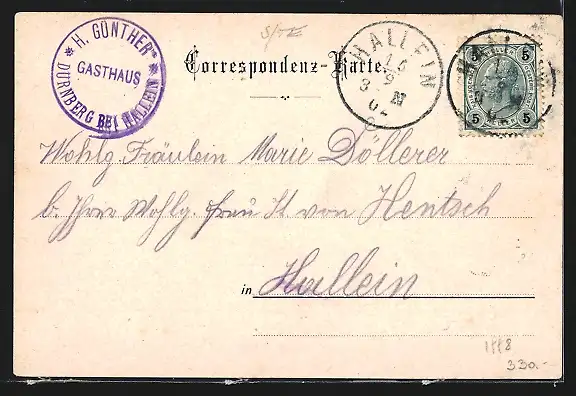 S/TE
* H. GÜNTHER *
GASTHAUS
DÜRNBERG BEI HALLEIN
Correspondenz-Karte.
HALLEIN
5 5
5 5
Wohlg. Fräulein Marie Döllerer
b. Ihrer Wohlg. Frau St. von Hentsch
in Hallein
330.-